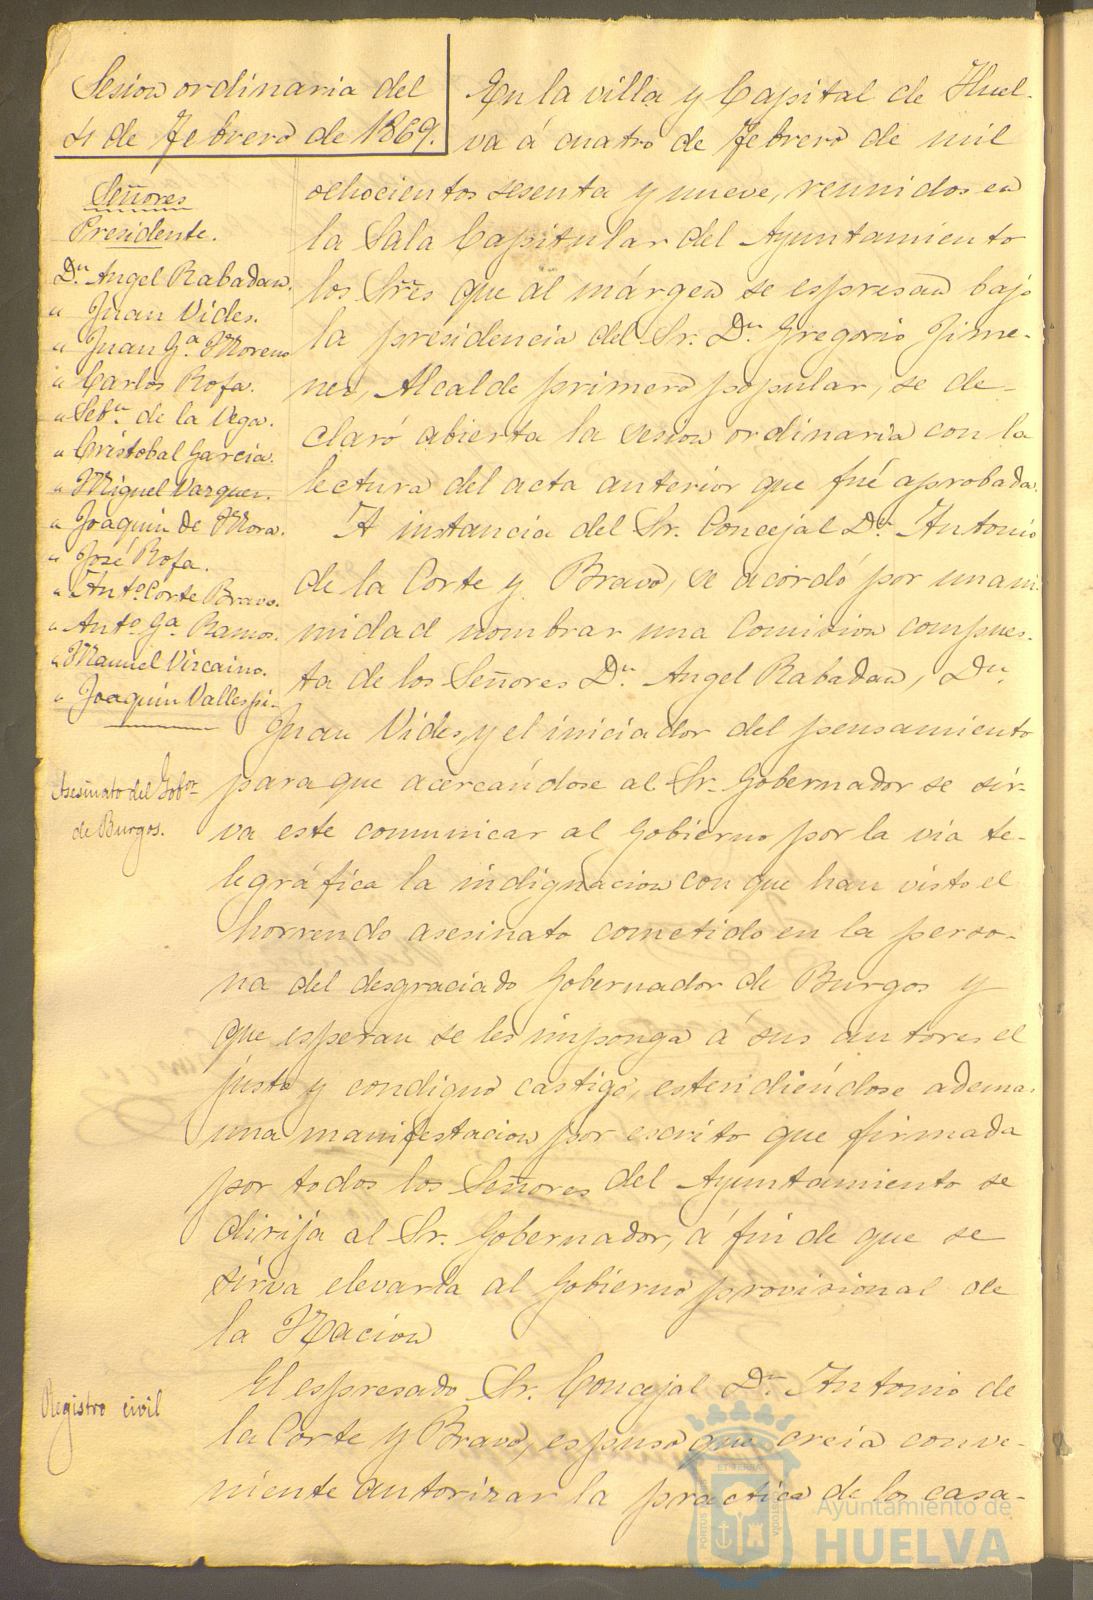 Sesion ordinaria del
4 de Febrero de 1869.
Señores
Presidente.
Dn. Angel Rabadan.
" Juan Vides.
" Juan Ga. Moreno
" Carlos Rofa.
" Sebn. de la Vega.
" Cristobal Garcia.
" Miguel Vazquez.
" Joaquin de Mora.
" José Rofa.
" Anto. Corte Bravo.
" Anto. Ga. Ramos.
" Manuel Viscaino.
" Joaquin Vallespi.
En la villa y Capital de Huel-
va á cuatro de Febrero de mil
ochocientos sesenta y nueve, reunidos en
la Sala Capitular del Ayuntamiento
los Sres que al márgen se espresan bajo
la presidencia del Sr. Dn. Gregorio Jime-
nez, Alcalde primero popular, se de-
claró abierta la sesion ordinaria con la
lectura del acta anterior que fué aprobada.
A instancia del Sr. Concejal Dn. Antonio
de la Corte y Bravo, se acordó por unani-
midad nombrar una Comision compues-
ta de los Señores Dn. Angel Rabadan, Dn.
Juan Vides, y el iniciador del pensamiento
Asesinato del Gobor.
de Burgos.
para que acercandose al Sr. Gobernador se sir-
va este comunicar al Gobierno por la via te-
legráfica la indignacion con que han visto el
horrendo asesinato cometido en la perso-
na del desgraciado Gobernador de Burgos y
que esperan se les imponga á sus autores el
justo y condigno castigo, estendiéndose ademas
una manifestacion por escrito que firmada
por todos los Señores del Ayuntamiento se
dirija al Sr. Gobernador, á fin de que se
sirva elevarla al Gobierno provisional de
la Nacion
Registro civil
El espresado Sr. Concejal Dn. Antonio de
la Corte y Bravo, espuso que creia conve-
niente autorizar la practica de los casa-
Ayuntamiento de
HUELVA